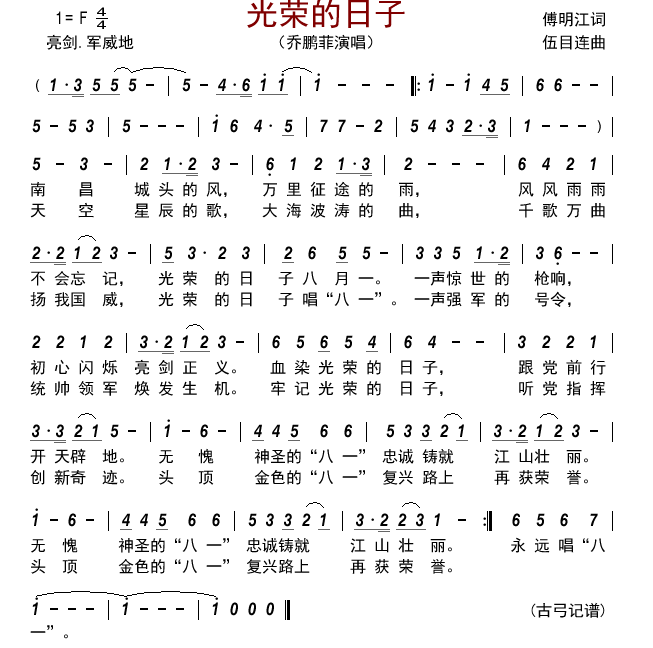 光荣的日子
1= F 4/4
傅明江词
亮剑.军威地
（乔鹏菲演唱）
伍目连曲
( 1·3 5 5 5 - | 5 - 4·6 1 1 | 1 - - - |: 1 - 1 4 5 | 6 6 - - |
5 - 5 3 | 5 - - - | 1 6 4· 5 | 7 7 - 2 | 5 4 3 2·3 | 1 - - - ) |
5 - 3 - | 2 1·2 3 | 6 1 2 1·3 | 2 - - - | 6 4 2 1 |
南 昌 城 头 的 风， 万 里 征 途 的 雨， 风 风 雨 雨
天 空 星 辰 的 歌， 大 海 波 涛 的 曲， 千 歌 万 曲
2·2 1 2 3 - | 5 3· 2 3 | 2 6 5 5 - | 3 3 5 1·2 | 3 6 - - |
不 会 忘 记， 光 荣 的 日 子 八 月 一。 一声惊 世 的 枪响，
扬 我 国 威， 光 荣 的 日 子 唱 “八 一”。 一声强 军 的 号令，
2 2 1 2 | 3·2 1 2 3 - | 6 5 6 5 4 | 6 4 - - | 3 2 2 1 |
初 心 闪 烁 亮 剑 正 义。 血 染 光 荣 的 日 子， 跟 党 前 行
统 帅 领 军 焕 发 生 机。 牢 记 光 荣 的 日 子， 听 党 指 挥
3·3 2 1 5 - | 1 - 6 - | 4 4 5 6 6 | 5 3 3 2 1 | 3·2 1 2 1 - |
开 天辟 地。 无 愧 神圣的 “八 一” 忠诚 铸就 江 山壮 丽。
创 新奇 迹。 头 顶 金色的 “八 一” 复兴 路上 再 获荣 誉。
1 - 6 - | 4 4 5 6 6 | 5 3 3 2 1 | 3·2 2 3 1 - :| 6 5 6 7 |
无 愧 神圣的 “八 一” 忠诚铸就 江 山 壮 丽。 永 远 唱 “八
头 顶 金色的 “八 一” 复兴路上 再 获 荣 誉。
1 - - - | 1 - - - | 1 0 0 0 ‖ (古弓记谱)
一”。